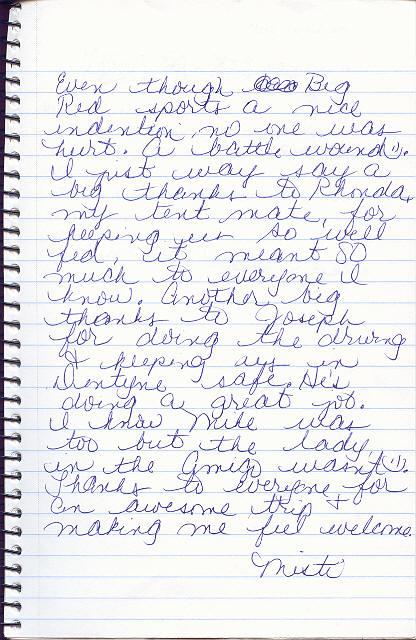 Even though Big
Red sports a nice
indention, no one was
hurt. A battle wound :).
I just way say a
big thanks to Rhonda,
my tent mate, for
keeping us so well
fed, it meant SO
much to everyone I
know. Another big
thanks to Joseph
for doing the driving
& keeping us in
Dentyne safe. He's
doing a great job.
I know Mike was
too but the lady
in the Amigo wasn't :).
Thanks to everyone for
an awesome trip &
making me feel welcome.
Misti